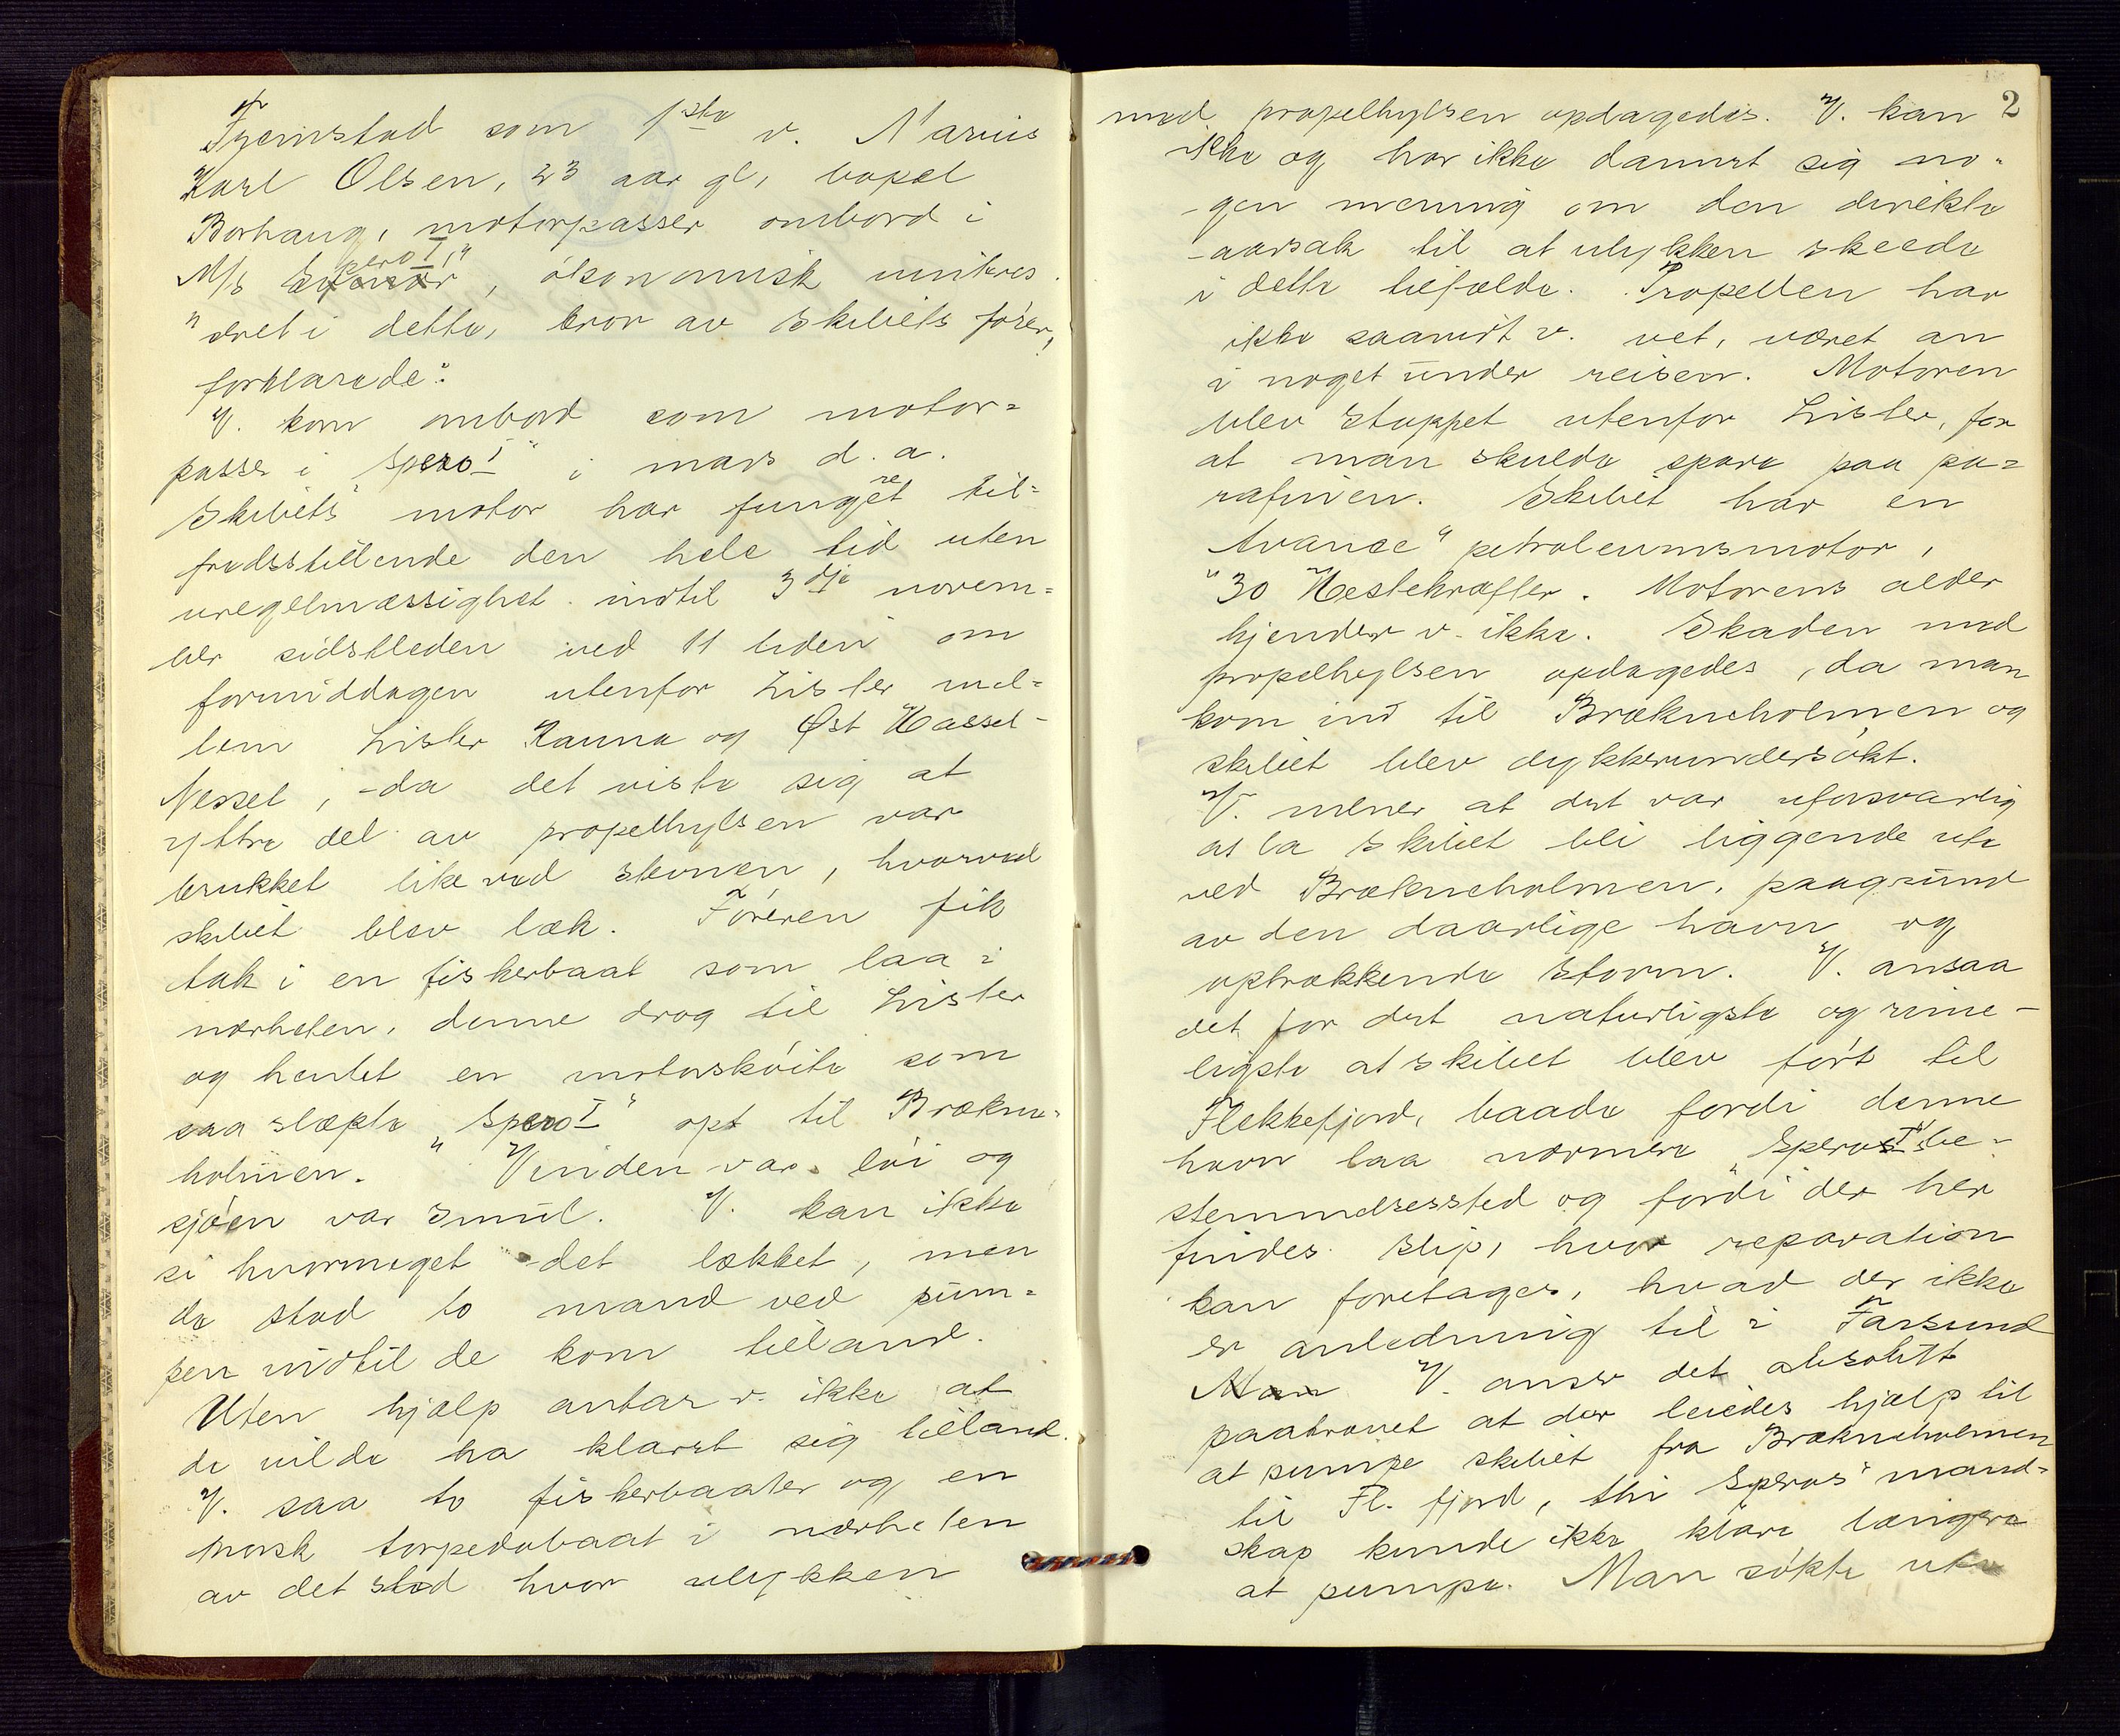 Fremstod som 1ste v. Marius
Karl Olsen, 23 aar gl, bopæl
Borhaug, motorpasser ombord i
M/S Spero I", økonomisk uinteres
"æret i dette, bror av skibets fører,
forklarede:
V. kom ombord som motor=
passer i "Spero I" i mars d.a.
Skibets motor har fungeret til=
fredsstillende den hele tid uten
uregelmæssighet indtil 3dje novem=
ber sidstleden ved 11 tiden om
formiddagen utenfor Lister mel=
lem Lister Rauna og Øst Hassel-
Nessel, da det viste sig at
yttre del av propelhylsen var
brukket like ved stevnen, hvorved
skibet blev læk. Føreren fik
tak i en fiskerbaat som laa i
nærheten, denne drog til Lister
og hentet en motorskøite som
saa slæpte "Spero I" opt til Brækne=
holmen. Vinden var løi og
sjøen var smul. V. kan ikke
si hvormeget det lækket, men
de stod to mand ved pum=
pen indtil de kom tilland.
Uten hjælp antar v. ikke at
de vilde ha klaret sig tilland.
V. saa to fiskerbaater og en
norsk torpedobaat i nærheten
av det sted hvor ulykken
2
med propelhylsen opdagedes. V. kan
ikke og har ikke dannet sig no-
gen mening om den direkte
aarsak til at ulykken skeede
i dette tilfælde. Propellen har
ikke saavidt v. vet, været an
i noget under reisen. Motoren
blev stoppet utenfor Lister, for
at man skulde spare paa pa=
rafinen. Skibet har en
"Avance" petroleumsmotor,
30 Hestekræfter. Motorens alder
kjender v. ikke. Skaden med
propelhylsen opdagedes, da man
kom ind til Brækneholmen og
skibet blev dykkerundersøkt.
V. mener at det var uforsvarlig
at la skibet bli liggende ute
ved Brækneholmen, paagrund
av den daarlige havn og
optrækkende storm. V. ansaa
det for det naturligste og rime-
ligste at skibet blev ført til
Flekkefjord, baade fordi denne
havn laa nærmere "Spero I"s be-
stemmelsessted og fordi der her
findes slip, hvor reparation
kan foretages, hvad der ikke
er anledning til i Farsund
Man V. anser det absolutt
paakrævet at der leiedes hjælp til
at pumpe skibet fra Brækneholmen
til Fl. fjord, thi "Speros" mand=
skap kunde ikke klare længere
at pumpe. Man søkte